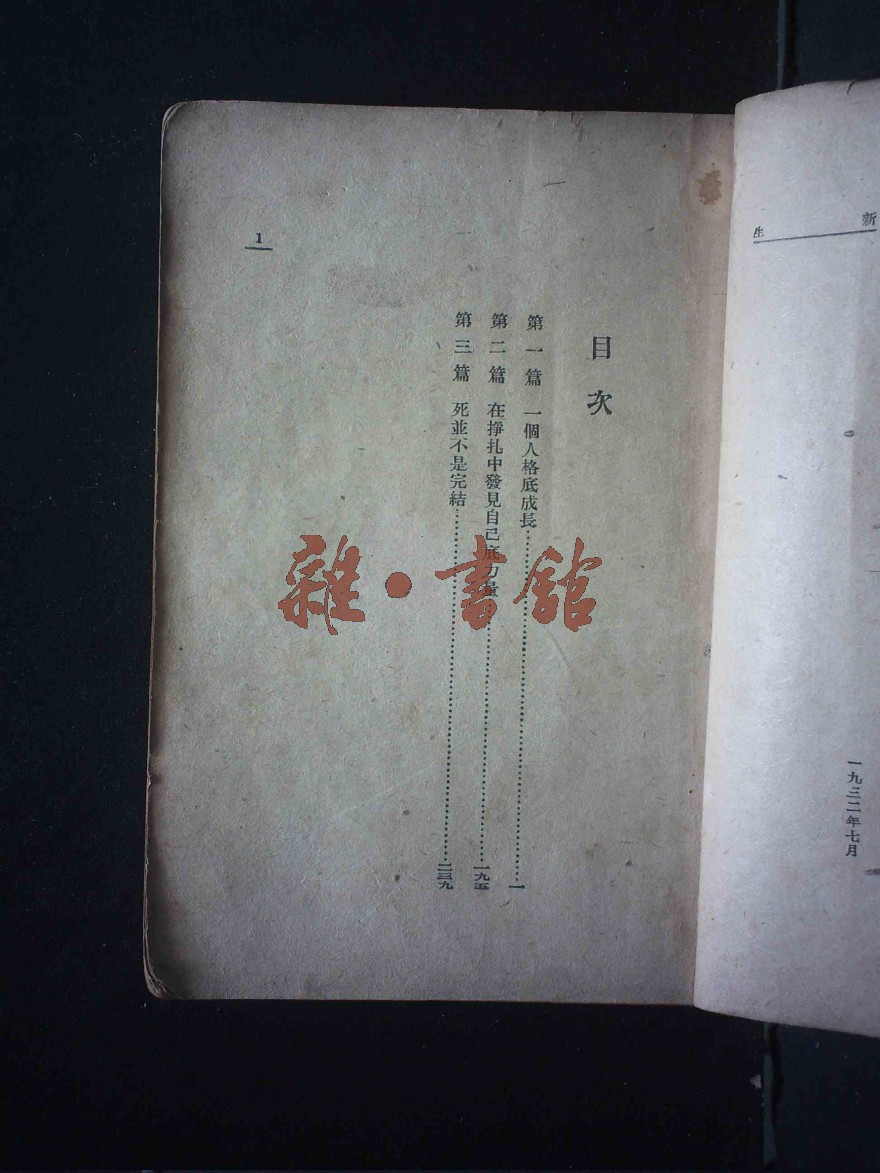 新生
一九三二年七月
目次
第一篇 一個人格底成長⋯⋯⋯⋯一
第二篇 在掙扎中發見自己底力量⋯⋯⋯⋯一九五
第三篇 死並不是完結⋯⋯⋯⋯二三九
1
雜·書館